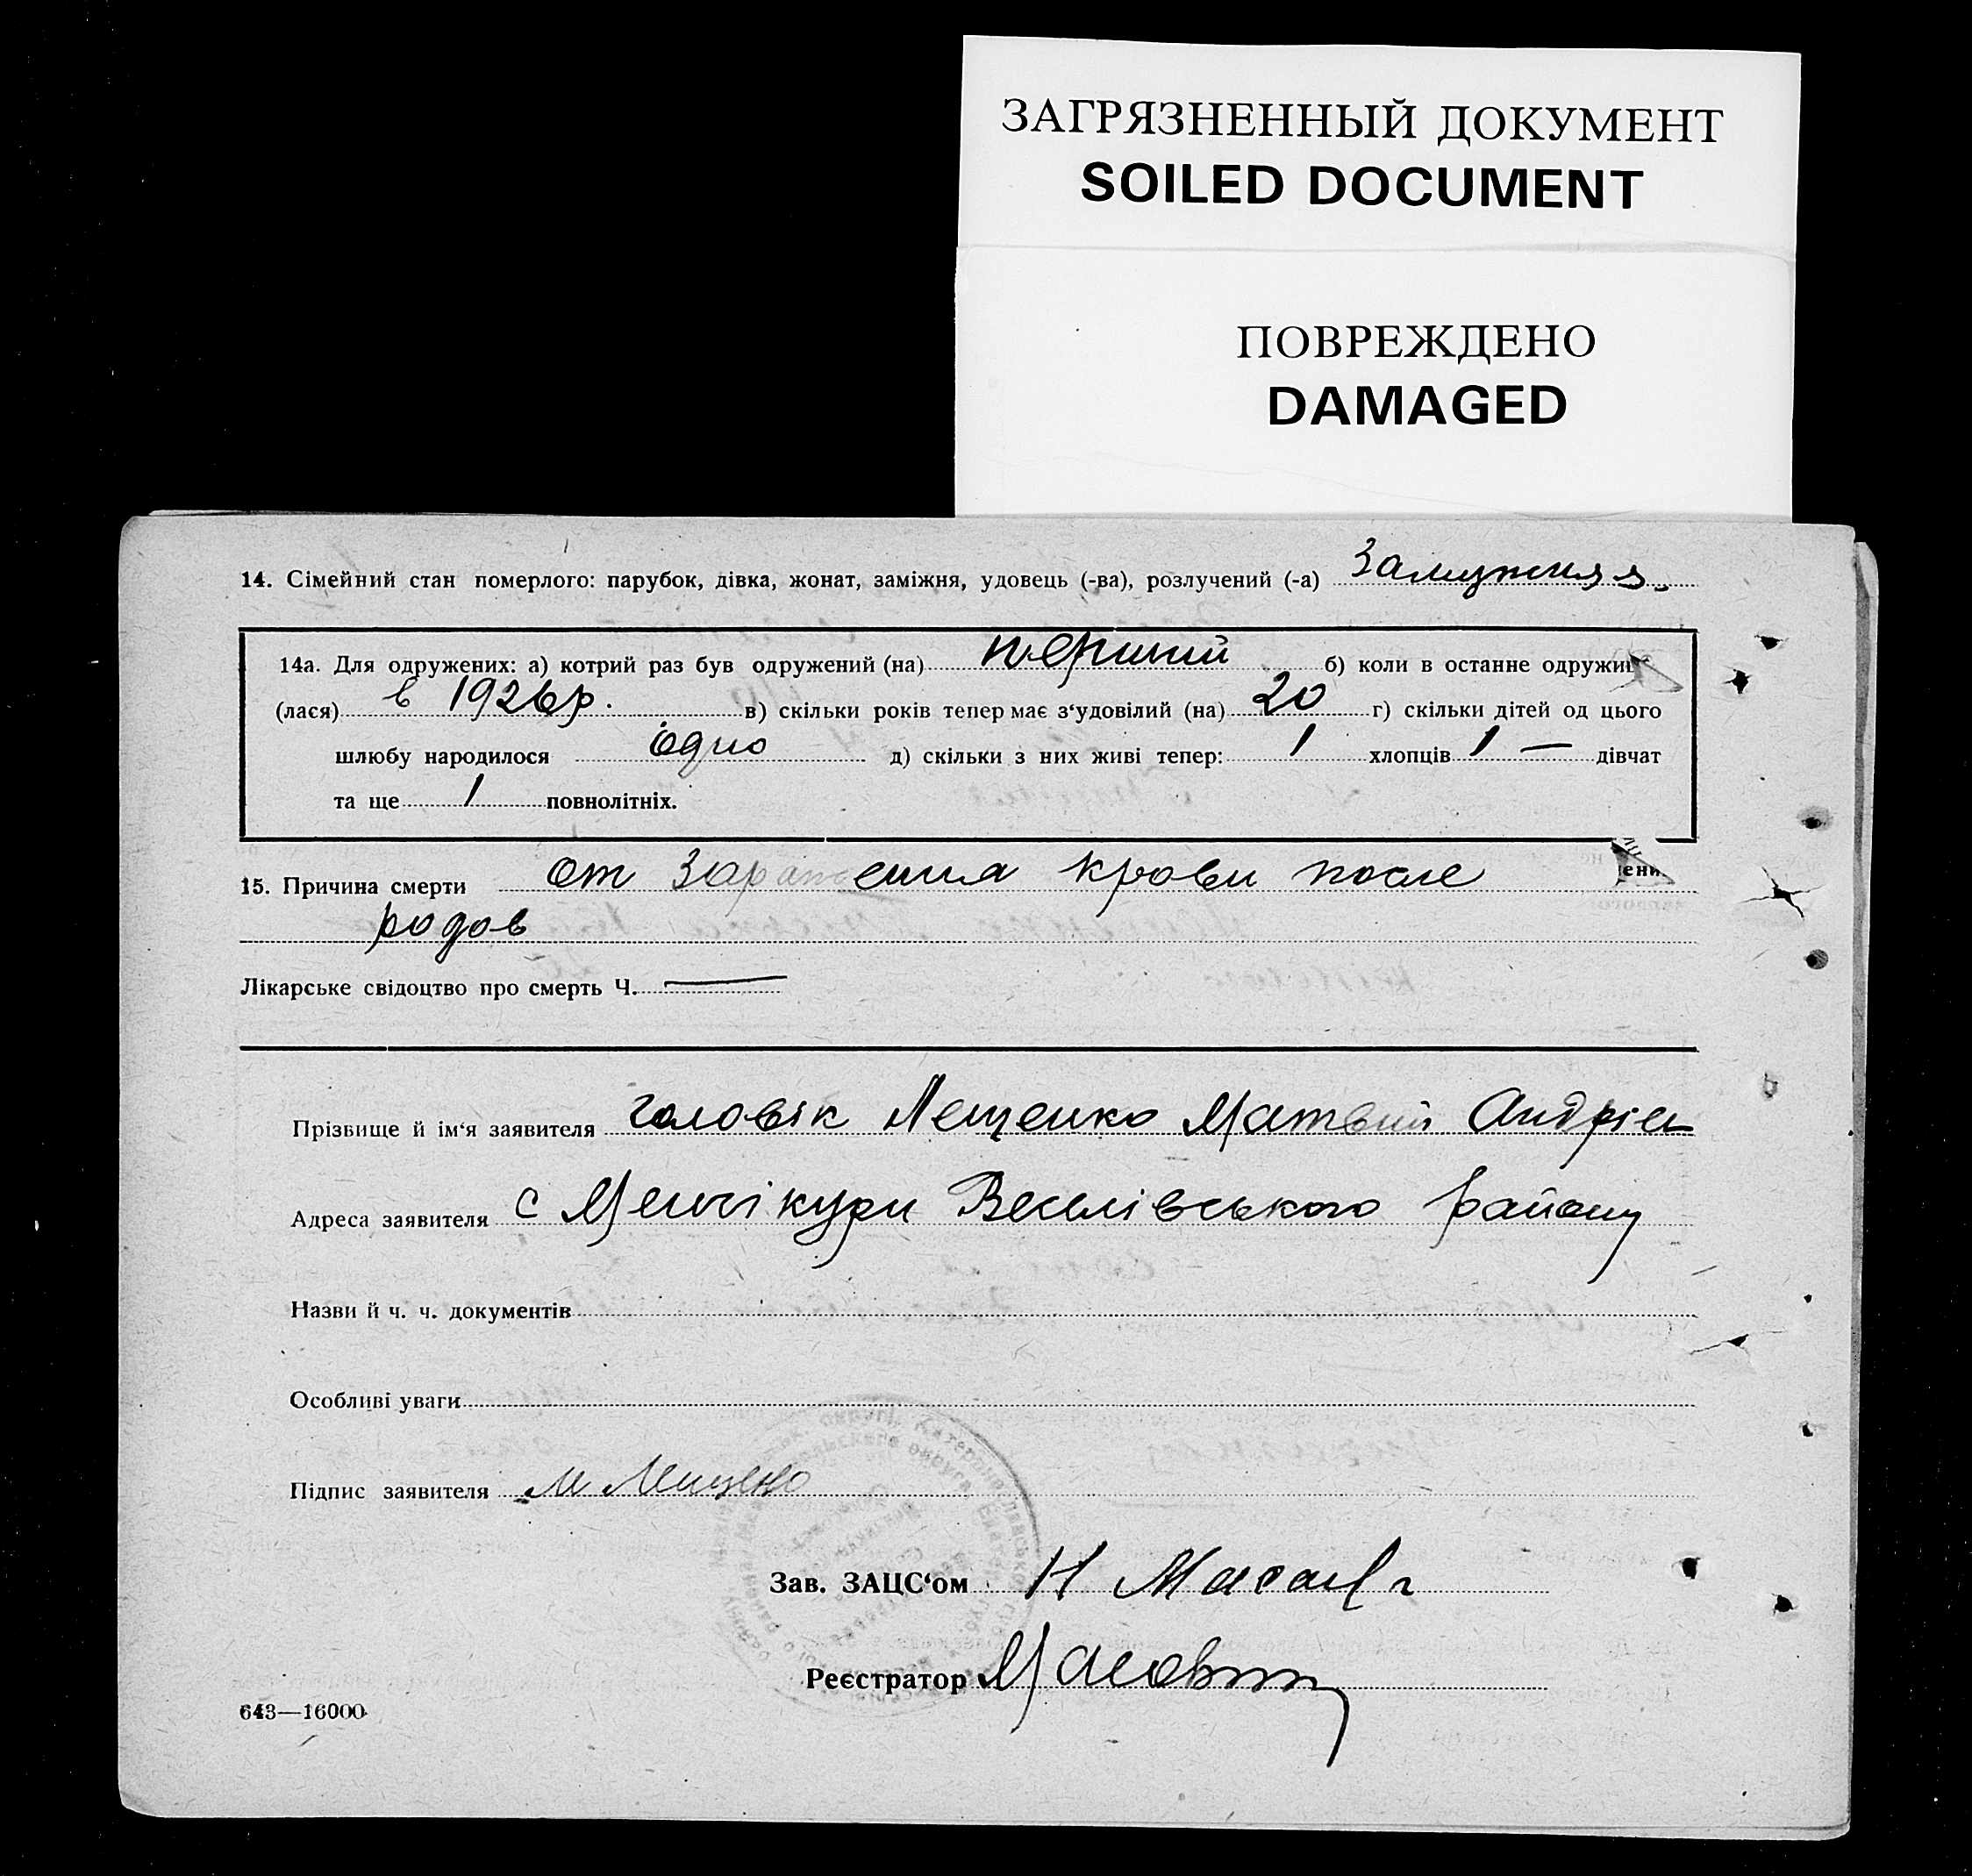 ЗАГРЯЗНЕННЫЙ ДОКУМЕНТ
SOILED DOCUMENT
ПОВРЕЖДЕНО
DAMAGED
14. Сімейний стан померлого: парубок, дівка, жонат, заміжня, удовець (-ва), розлучений (-а) Замужняя.
14а. Для одружених: а) котрий раз був одружений (на) перший б) коли в останне одружи
(лася) в 1926 р. в) скільки років тепер має з‘удовілий (на) 20 г) скільки дітей од цього
шлюбу народилося одно д) скільки з них живі тепер: 1 хлопців 1 — дівчат
та ще 1 повнолітніх.
15. Причина смерти от заражения крови после
родов
Лікарське свідоцтво про смерть Ч. —
Прізвище й ім‘я заявителя головік Лещенко Матвий Андрієв
Адреса заявителя с Менчікури Веселівського району
Назви й ч. ч. документів
Особливі уваги
Підпис заявителя М Лищено
Зав. ЗАЦС‘ом Н
Реєстратор
643—16000